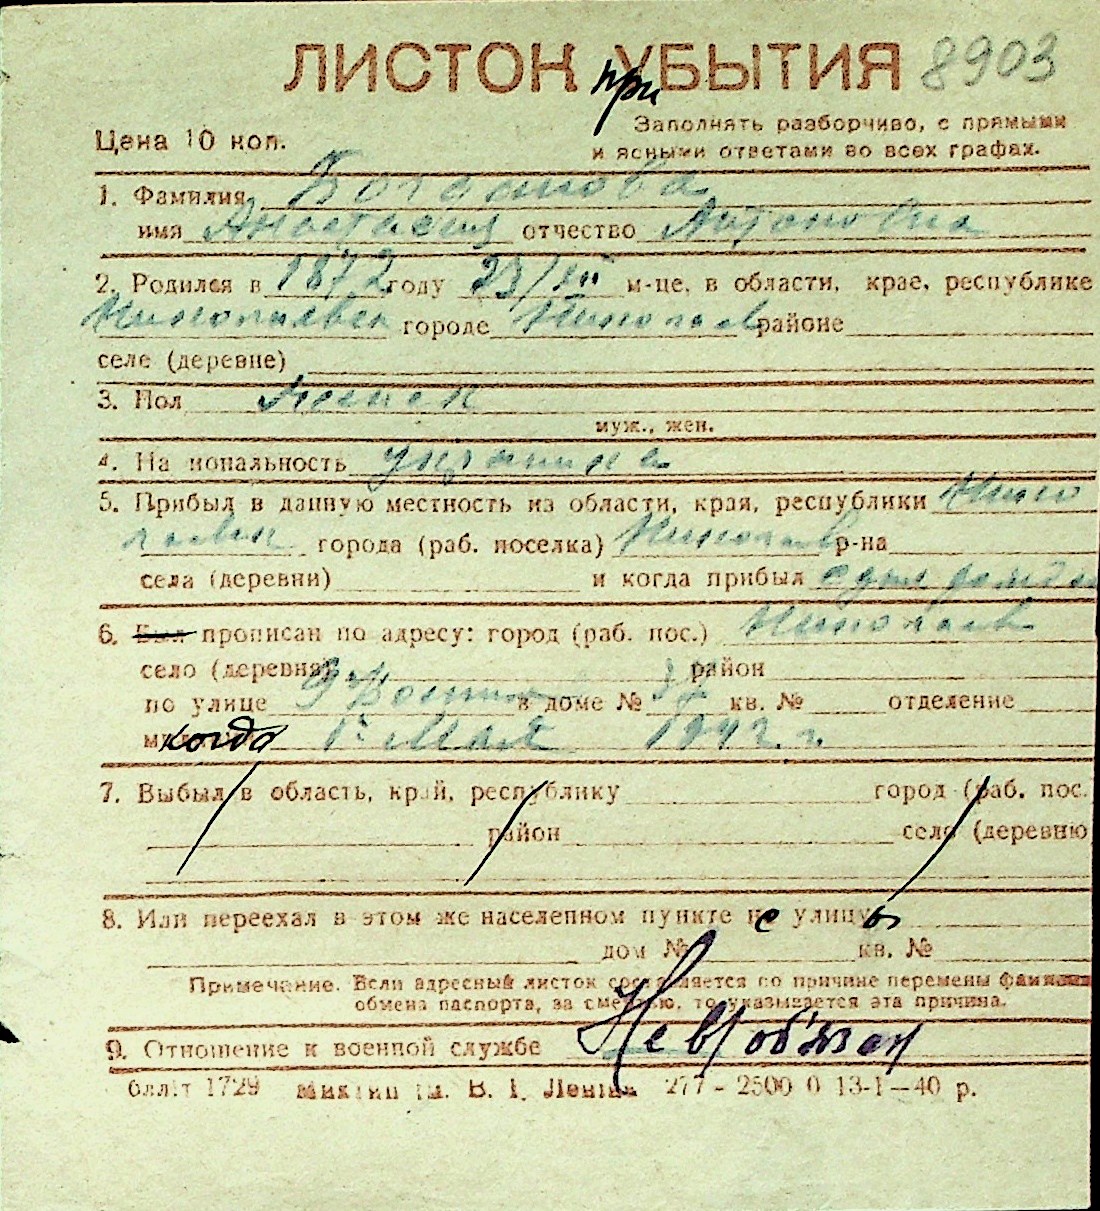 ЛИСТОК УБЫТИЯ 8903
при
Заполнять разборчиво, с прямыми
Цена 10 коп.
и ясными ответами во всех графах.
1. Фамилия Богданова
имя Анастасия отчество Антоновна
2. Родился в 1872 году 23/XII м-це, в области, крае, республике
Николаевск городе Николаев районе
селе (деревне)
3. Пол женск
муж., жен.
4. На иональность украинка
5. Прибыл в данную местность из области, края, республики Нико
лаевск города (раб. поселка) Николаев р-на
села (деревни) и когда прибыл
6. Был прописан по адресу: город (раб. пос.) Николаев
село (деревня) район
по улице в доме № кв. № отделение
когда 1 Мая 1942 г.
7. Выбыл в область, край, республику город (раб. пос.
район село (деревню
8. Или переехал в этом же населенном пункте с улицы
дом № кв. №
Примечание. Если адресный листок составляется по причине перемены фамилии
обмена паспорта, за смертью, то указывается эта причина.
9. Отношение к военной службе Не в/обязан
1729 В. И. Ленина 277 - 2500 0 13-I-40 р.